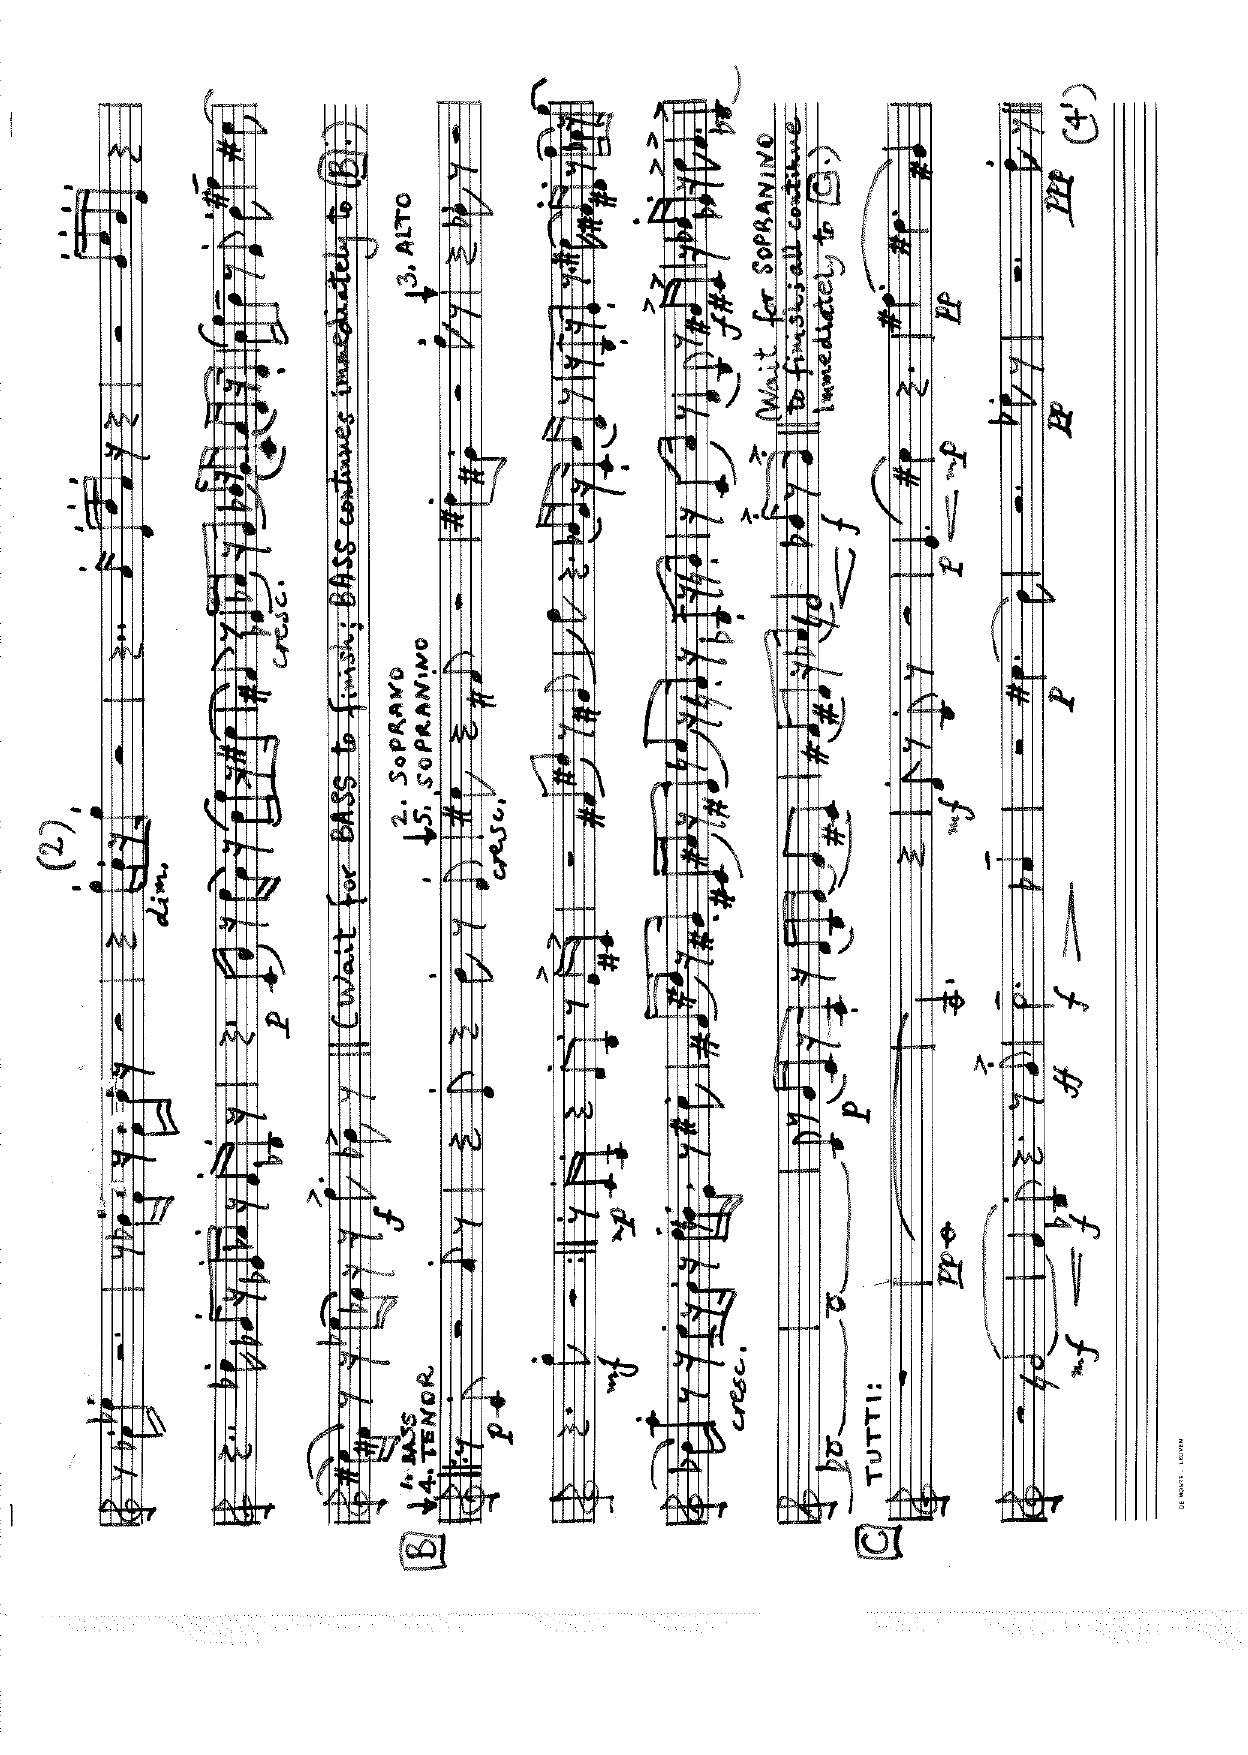 (2)
dim.
p
cresc.
(Wait for BASS to finish; BASS continues immediately to B.)
f
B
1. BASS
4. TENOR
2. SOPRANO
5. SOPRANINO
3. ALTO
p
cresc.
mf
mp
cresc.
f
p
f
(Wait for SOPRANINO
to finish; all continue
immediately to C.)
C
TUTTI:
pp
mf
p
mp
pp
mf
f
ff
f
p
pp
ppp
(4')
DE MONTE - LEUVEN